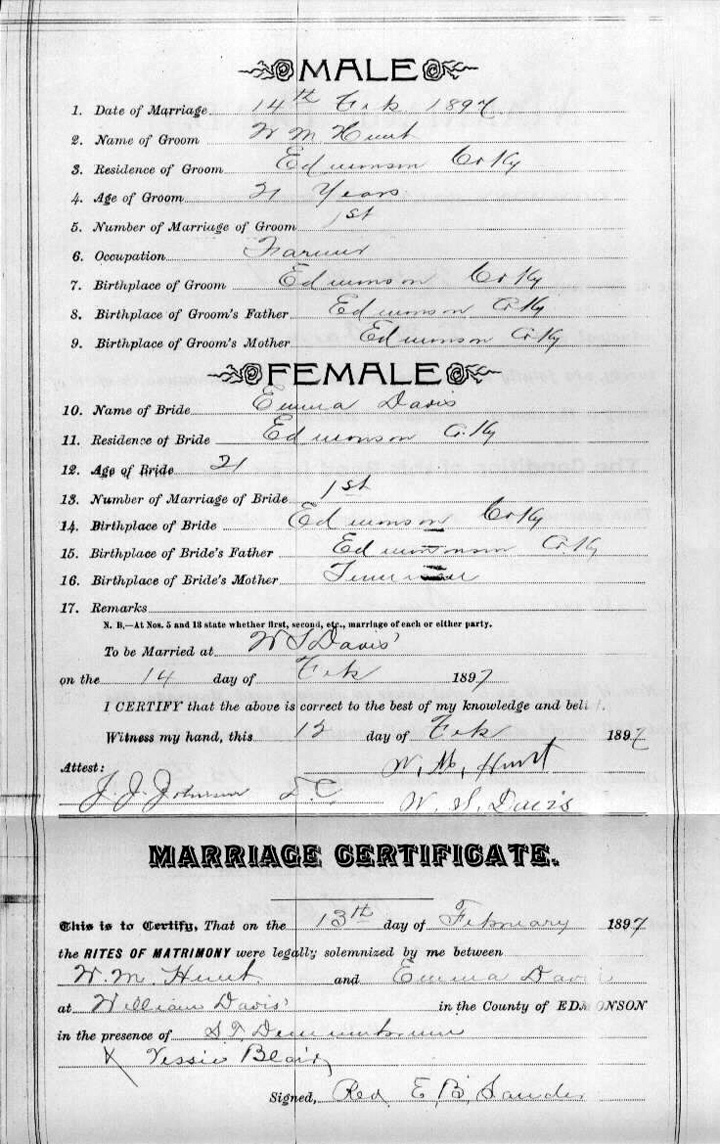 MALE
1. Date of Marriage 14th Feb. 1897
2. Name of Groom W M Hunt
3. Residence of Groom Edmonson Co Ky
4. Age of Groom 21 Years
5. Number of Marriage of Groom 1st
6. Occupation Farmer
7. Birthplace of Groom Edmonson Co Ky
8. Birthplace of Groom's Father Edmonson Co Ky
9. Birthplace of Groom's Mother Edmonson Co Ky
FEMALE
10. Name of Bride Emma Davis
11. Residence of Bride Edmonson Co. Ky
12. Age of Bride 21
13. Number of Marriage of Bride 1st
14. Birthplace of Bride Edmonson Co Ky
15. Birthplace of Bride's Father Edmonson Co. Ky
16. Birthplace of Bride's Mother
17. Remarks
N. B.—At Nos. 5 and 13 state whether first, second, etc., marriage of each or either party.
To be Married at W S Davis'
on the 14 day of Feb 1897
I CERTIFY that the above is correct to the best of my knowledge and beli
Witness my hand, this 12 day of Feb 1897
Attest: W. M. Hunt
J. J. Johnson D. C. W. S. Davis
MARRIAGE CERTIFICATE.
This is to Certify, That on the 13th day of February 1897
the RITES OF MATRIMONY were legally solemnized by me between
W. M. Hunt. and Emma Davis
at William Davis' in the County of EDMONSON
in the presence of S. T.
Vessie Blair
Signed, Rev. E. B. Sander